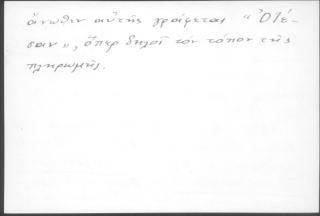 ἄνωθεν αὐτῆς γράφεται "Ὀδέ-
σαν", ὅπερ δηλοῖ τὸν τόπον τῆς
πληρωμῆς.